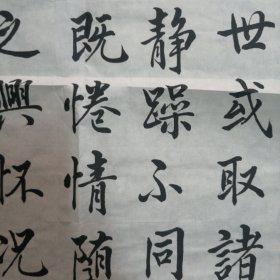 世或取諸
静躁不同
既惓情随
之興怀况